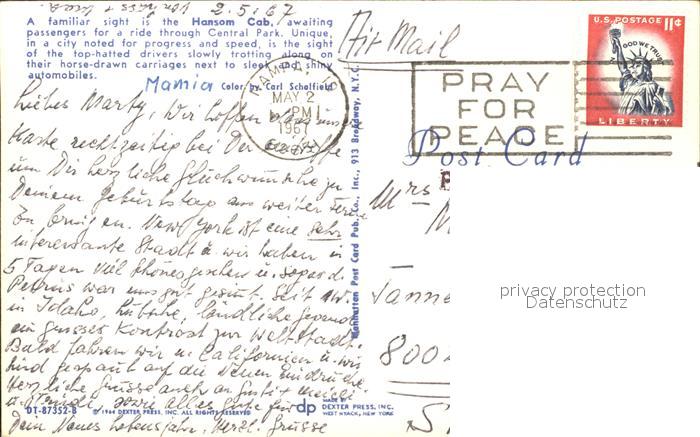 2.5.67
A familiar sight is the Hansom Cab, awaiting
passengers for a ride through Central Park. Unique,
in a city noted for progress and speed, is the sight
of the top-hatted drivers slowly trotting along on
their horse-drawn carriages next to sleek and shiny
automobiles.
Mamia Color by Carl Schalfield
Air Mail
NAMPA
MAY 2
PM
1967
PRAY
FOR
PEACE
U.S. POSTAGE 11¢
IN GOD WE TRUST
LIBERTY
Post Card
Liebes Marty, Wir hoffen
Karte rechtzeitig bei Dir
um Dir herzliche Glückwünsche zu
Deinem Geburtstag aus weiter Ferne
zu bringen. New York ist eine sehr
interessante Stadt u. wir haben in
5 Tagen viel schönes gesehen u. sogar d.
Petrus war uns gut gesinnt. Seit
in Idaho, hübsche, ländliche Gegend
ein grosser Kontrast zur Weltstadt.
Bald fahren wir n. Californien u. wir
sind gespannt auf die neuen Eindrücke.
Herzliche Grüsse auch an
sowie alles Gute für
Dein neues Lebensjahr. Herzl. Grüsse
Manhattan Post Card Pub. Co., Inc., 913 Broadway, N.Y.C.
Mrs
M
Tanne
800
privacy protection
Datenschutz
DT-87352-B
© 1964 DEXTER PRESS, INC. ALL RIGHTS RESERVED
dp
MADE BY
DEXTER PRESS, INC.
WEST NYACK, NEW YORK